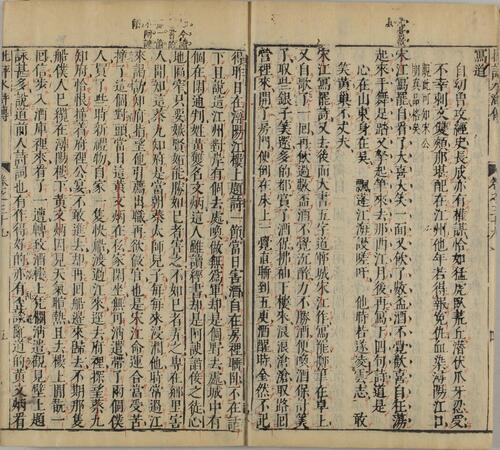 寫道
自幼曾攻經史長成亦有權謀恰如猛虎臥荒丘潛伏爪牙忍受
不幸刺文雙頰那堪配在江州他年若得報冤仇血染潯陽江口
宋江寫罷自看了大喜大笑一面又飲了數盃酒不覺歡喜自狂蕩
起來手舞足蹈又拏起筆來去那西江月後再寫下四句詩道是
心在山東身在吳 飄蓬江海謾嗟吁 他時若遂凌雲志 敢
笑黃巢不丈夫
宋江寫罷詩又去後面大書五字道鄆城宋江作寫罷擲筆在卓上
又自歌了一回再飲過數盃酒不覺沉醉力不勝酒便喚酒保計筭
了取些銀子筭還多的都賞了酒保拂袖下樓來踉踉蹌蹌取路回
營裡來開了房門便倒在床上一覺直睡到五更酒醒時全然不記
得昨日在潯陽江樓上題詩一節當日害酒自在房裡睡臥不在話
下且說這江州對岸有個去處喚做無爲軍却是個野去處城中有
個在閑通判姓黃雙名文炳這人雖讀經書却是個阿諛謟佞之徒心
地匾窄只要嫉賢妬能勝如己者害之不如己者弄之專在鄉里害
人聞知這蔡九知府是當朝蔡太師兒子每每來浸潤他時常過江
來謁訪知府指望他引薦出職再欲做官也是宋江命運合當受苦
撞了這個對頭當日這黃文炳在私家閑坐無可消遣帶了兩個僕
人買了些時新禮物自家一隻快船渡過江來逕去府裡探望蔡九
知府恰恨撞着府裡公宴不敢進去却再回船邊來歸去不期那隻
船僕人已纜在潯陽樓下黃文炳因見天氣暄熱且去樓上閑翫一
回信步入酒庫裡來看了一遭轉到酒樓上凭欄消遣觀見壁上題
詠甚多說道前人詩詞也有作得好的亦有歪談亂道的黃文炳看